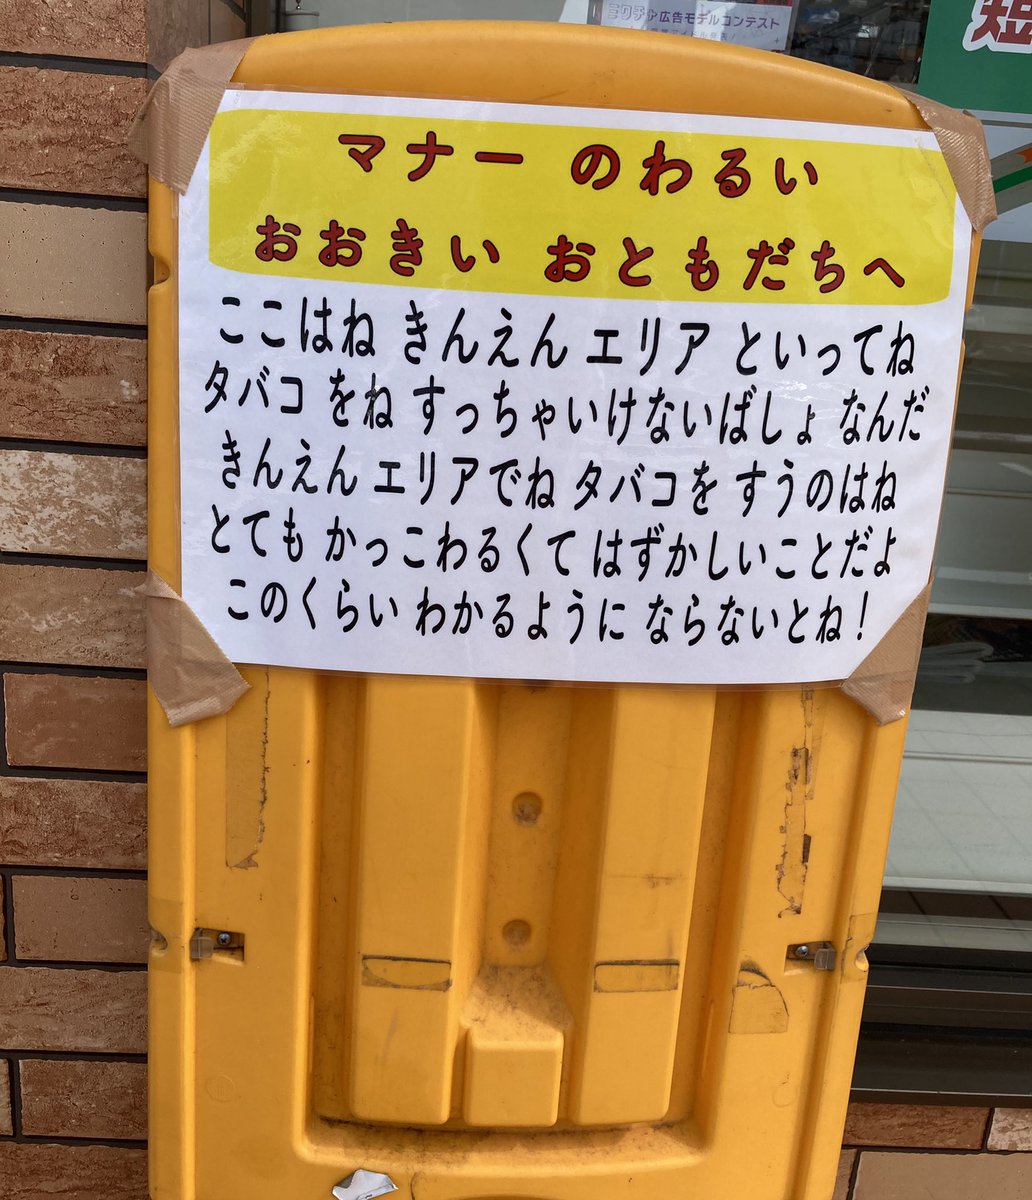 ミクチャ広告モデルコンテスト
短
マナー のわるい
おおきい おともだちへ
ここはね きんえん エリア といってね
タバコ をね すっちゃいけないばしょ なんだ
きんえん エリアでね タバコを すうのはね
とても かっこわるくて はずかしいことだよ
このくらい わかるように ならないとね！